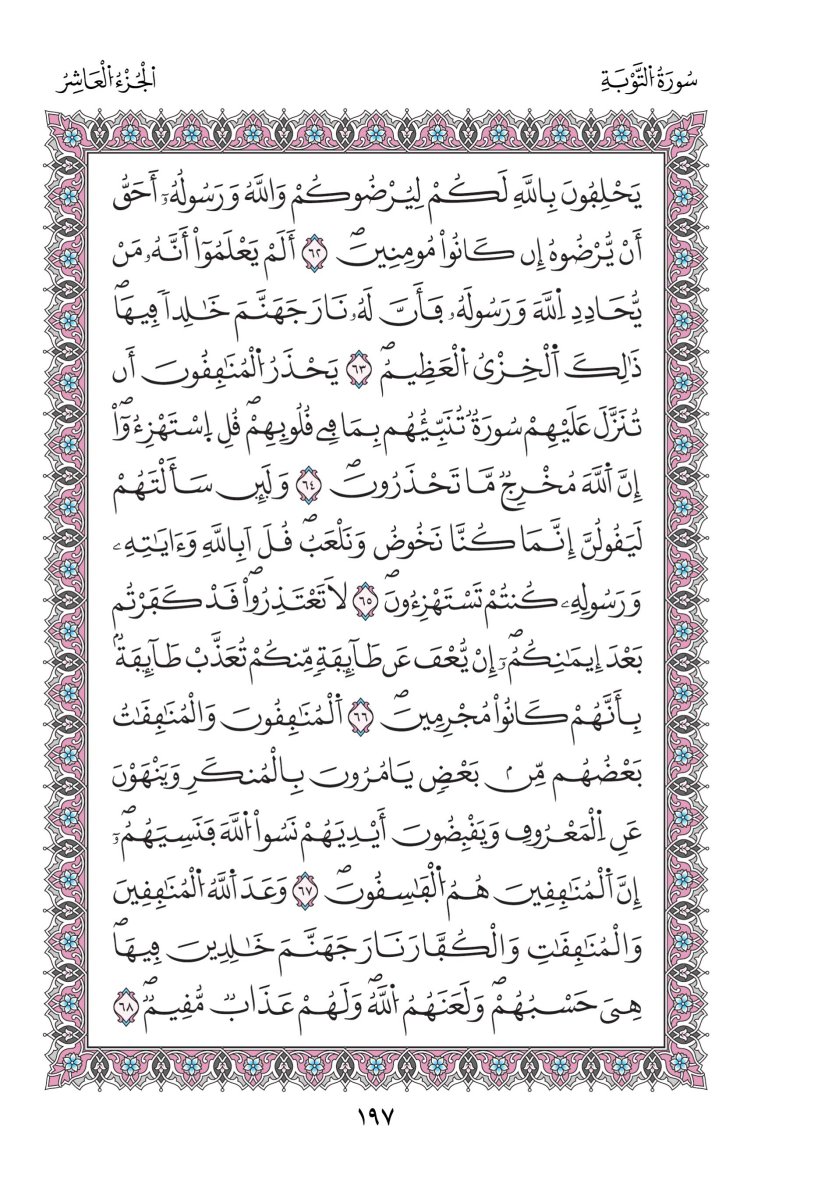 سُورَةُ اُلتَّوْبَةِ
اُلْجُزْءُ اُلْعَاشِرُ
يَحْلِفُونَ بِاللَّهِ لَكُمْ لِيُرْضُوكُمْ وَاللَّهُ وَرَسُولُهُۥٓ أَحَقُّ
أَنْ يُّرْضُوهُ إِن كَانُواْ مُومِنِينَۖ ٦٢ أَلَمْ يَعْلَمُوٓاْ أَنَّهُۥ مَنْ
يُّحَادِدِ اِللَّهَ وَرَسُولَهُۥ فَأَنَّ لَهُۥ نَارَ جَهَنَّمَ خَٰلِداٗ فِيهَاۖ
ذَٰلِكَ اَلْخِزْيُ اُلْعَظِيمُۖ ٦٣ يَحْذَرُ اُلْمُنَٰفِقُونَ أَن
تُنَزَّلَ عَلَيْهِمْ سُورَةٞ تُنَبِّئُهُم بِمَا فِے قُلُوبِهِمْۖ قُلِ اِسْتَهْزِءُوٓاْۖ
إِنَّ اَللَّهَ مُخْرِجٞ مَّا تَحْذَرُونَۖ ٦٤ وَلَئِن سَأَلْتَهُمْ
لَيَقُولُنَّ إِنَّمَا كُنَّا نَخُوضُ وَنَلْعَبُۖ قُلَ اَبِاللَّهِ وَءَايَٰتِهِۦ
وَرَسُولِهِۦ كُنتُمْ تَسْتَهْزِءُونَۖ ٦٥ لَا تَعْتَذِرُواْۖ قَدْ كَفَرْتُم
بَعْدَ إِيمَٰنِكُمُۥٓۖ إِنْ يُّعْفَ عَن طَآئِفَةٖ مِّنكُمْ تُعَذَّبْ طَآئِفَةُۢ
بِأَنَّهُمْ كَانُواْ مُجْرِمِينَۖ ٦٦ اَلْمُنَٰفِقُونَ وَالْمُنَٰفِقَٰتُ
بَعْضُهُم مِّنۢ بَعْضٖ يَامُرُونَ بِالْمُنكَرِ وَيَنْهَوْنَ
عَنِ اِلْمَعْرُوفِ وَيَقْبِضُونَ أَيْدِيَهُمْ نَسُواْ اُللَّهَ فَنَسِيَهُمُۥٓۖ
إِنَّ اَلْمُنَٰفِقِينَ هُمُ اُلْفَٰسِقُونَۖ ٦٧ وَعَدَ اَللَّهُ اُلْمُنَٰفِقِينَ
وَالْمُنَٰفِقَٰتِ وَالْكُفَّارَ نَارَ جَهَنَّمَ خَٰلِدِينَ فِيهَاۖ
هِيَ حَسْبُهُمْۖ وَلَعَنَهُمُ اُللَّهُۖ وَلَهُمْ عَذَابٞ مُّقِيمٞۖ ٦٨
١٩٧